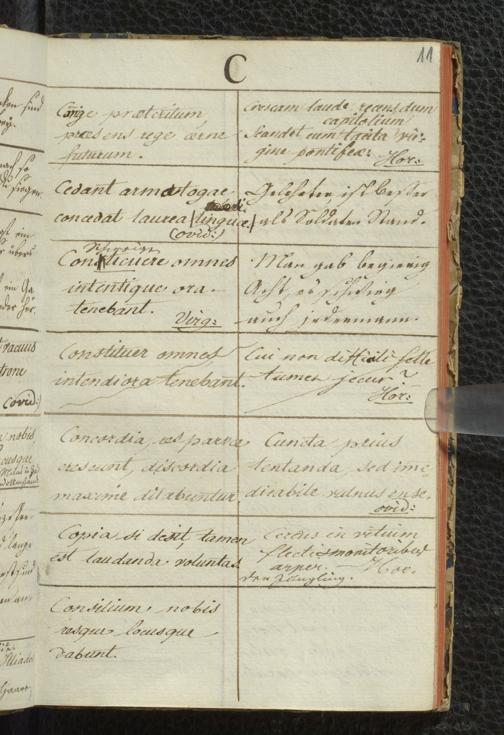 11
C
præteritum,
præsens rege cerne
futurum.
Crescam laude recens dum
capitolium
Scandet cum tacita vir-
gine pontifex. Hor:
Cedant arma togae
concedat laurea linguæ.
(Ovid:)
Gelehrten ist besser
als Soldaten Stand.
omnes
intentique ora
tenebant. Virg:
Man gab begierig
Acht, es schwieg
auch jedermann.
Constituer omnes
intendi ora tenebant.
Cui non difficili felle
tumet jecur?
Hor:
Concordia, res parvæ
crescunt, discordia
maximæ dilabuntur
Cuncta prius
tentanda, sed im̄e
dicabile vulnus ense.
ovid:
Copia si desit, tamen
est laudanda voluntas
Cereus in vitium
flecti monitoribus
asper. Hor.
den Jüngling.
Consilium nobis
resque locusque
dabunt.